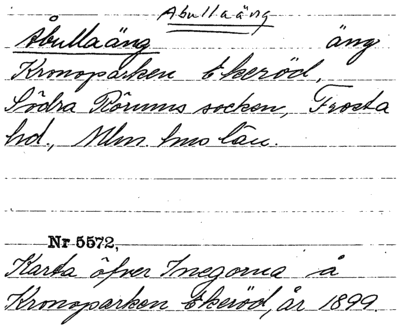 Abullaäng
Åbullaäng äng
Kronoparken Ekeröd,
Södra Rörums socken, Frosta
hd., Mlm hus län.
Nr 5572,
Karta öfver Inegorna å
Kronoparken Ekeröd, år 1899.